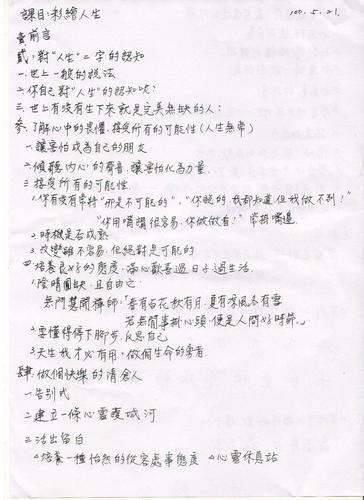 課目:彩繪人生
100.5.21.
壹前言
貳:對"人生"二字的認知
一.世上一般的說法
二.你自己對"人生"的認知呢?
三.世上有沒有生下來就是完美無缺的人:
參.了解心中的畏懼.接受所有的可能性(人生無常)
一.讓害怕成為自己的朋友
二.傾聽內心的聲音.讓害怕化為力量.
三.接受所有的可能性.
1.你有沒有常持"那是不可能的","你說的.我都知道.但我做不到!"
"你用嘴講很容易.你做做看!"常掛嘴邊.
2.時機是否成熟
3.改變雖不容易.但絕對是可能的
四.培養良好的態度.滿心歡喜過日子過生活.
1.陰晴圓缺.且自由之.
無門慧開禪師:「春有百花秋有月.夏有涼風冬有雪
若無閒事掛心頭.便是人間好時節.」
2.要懂得停下腳步.反思自己
3.天生我才必有用,做個生命的勇者.
肆.做個快樂的清倉人
一.告別式
二.建立一條心靈護城河
三.活出留白
△培養一種怡然的從容處事態度 △心靈休息站